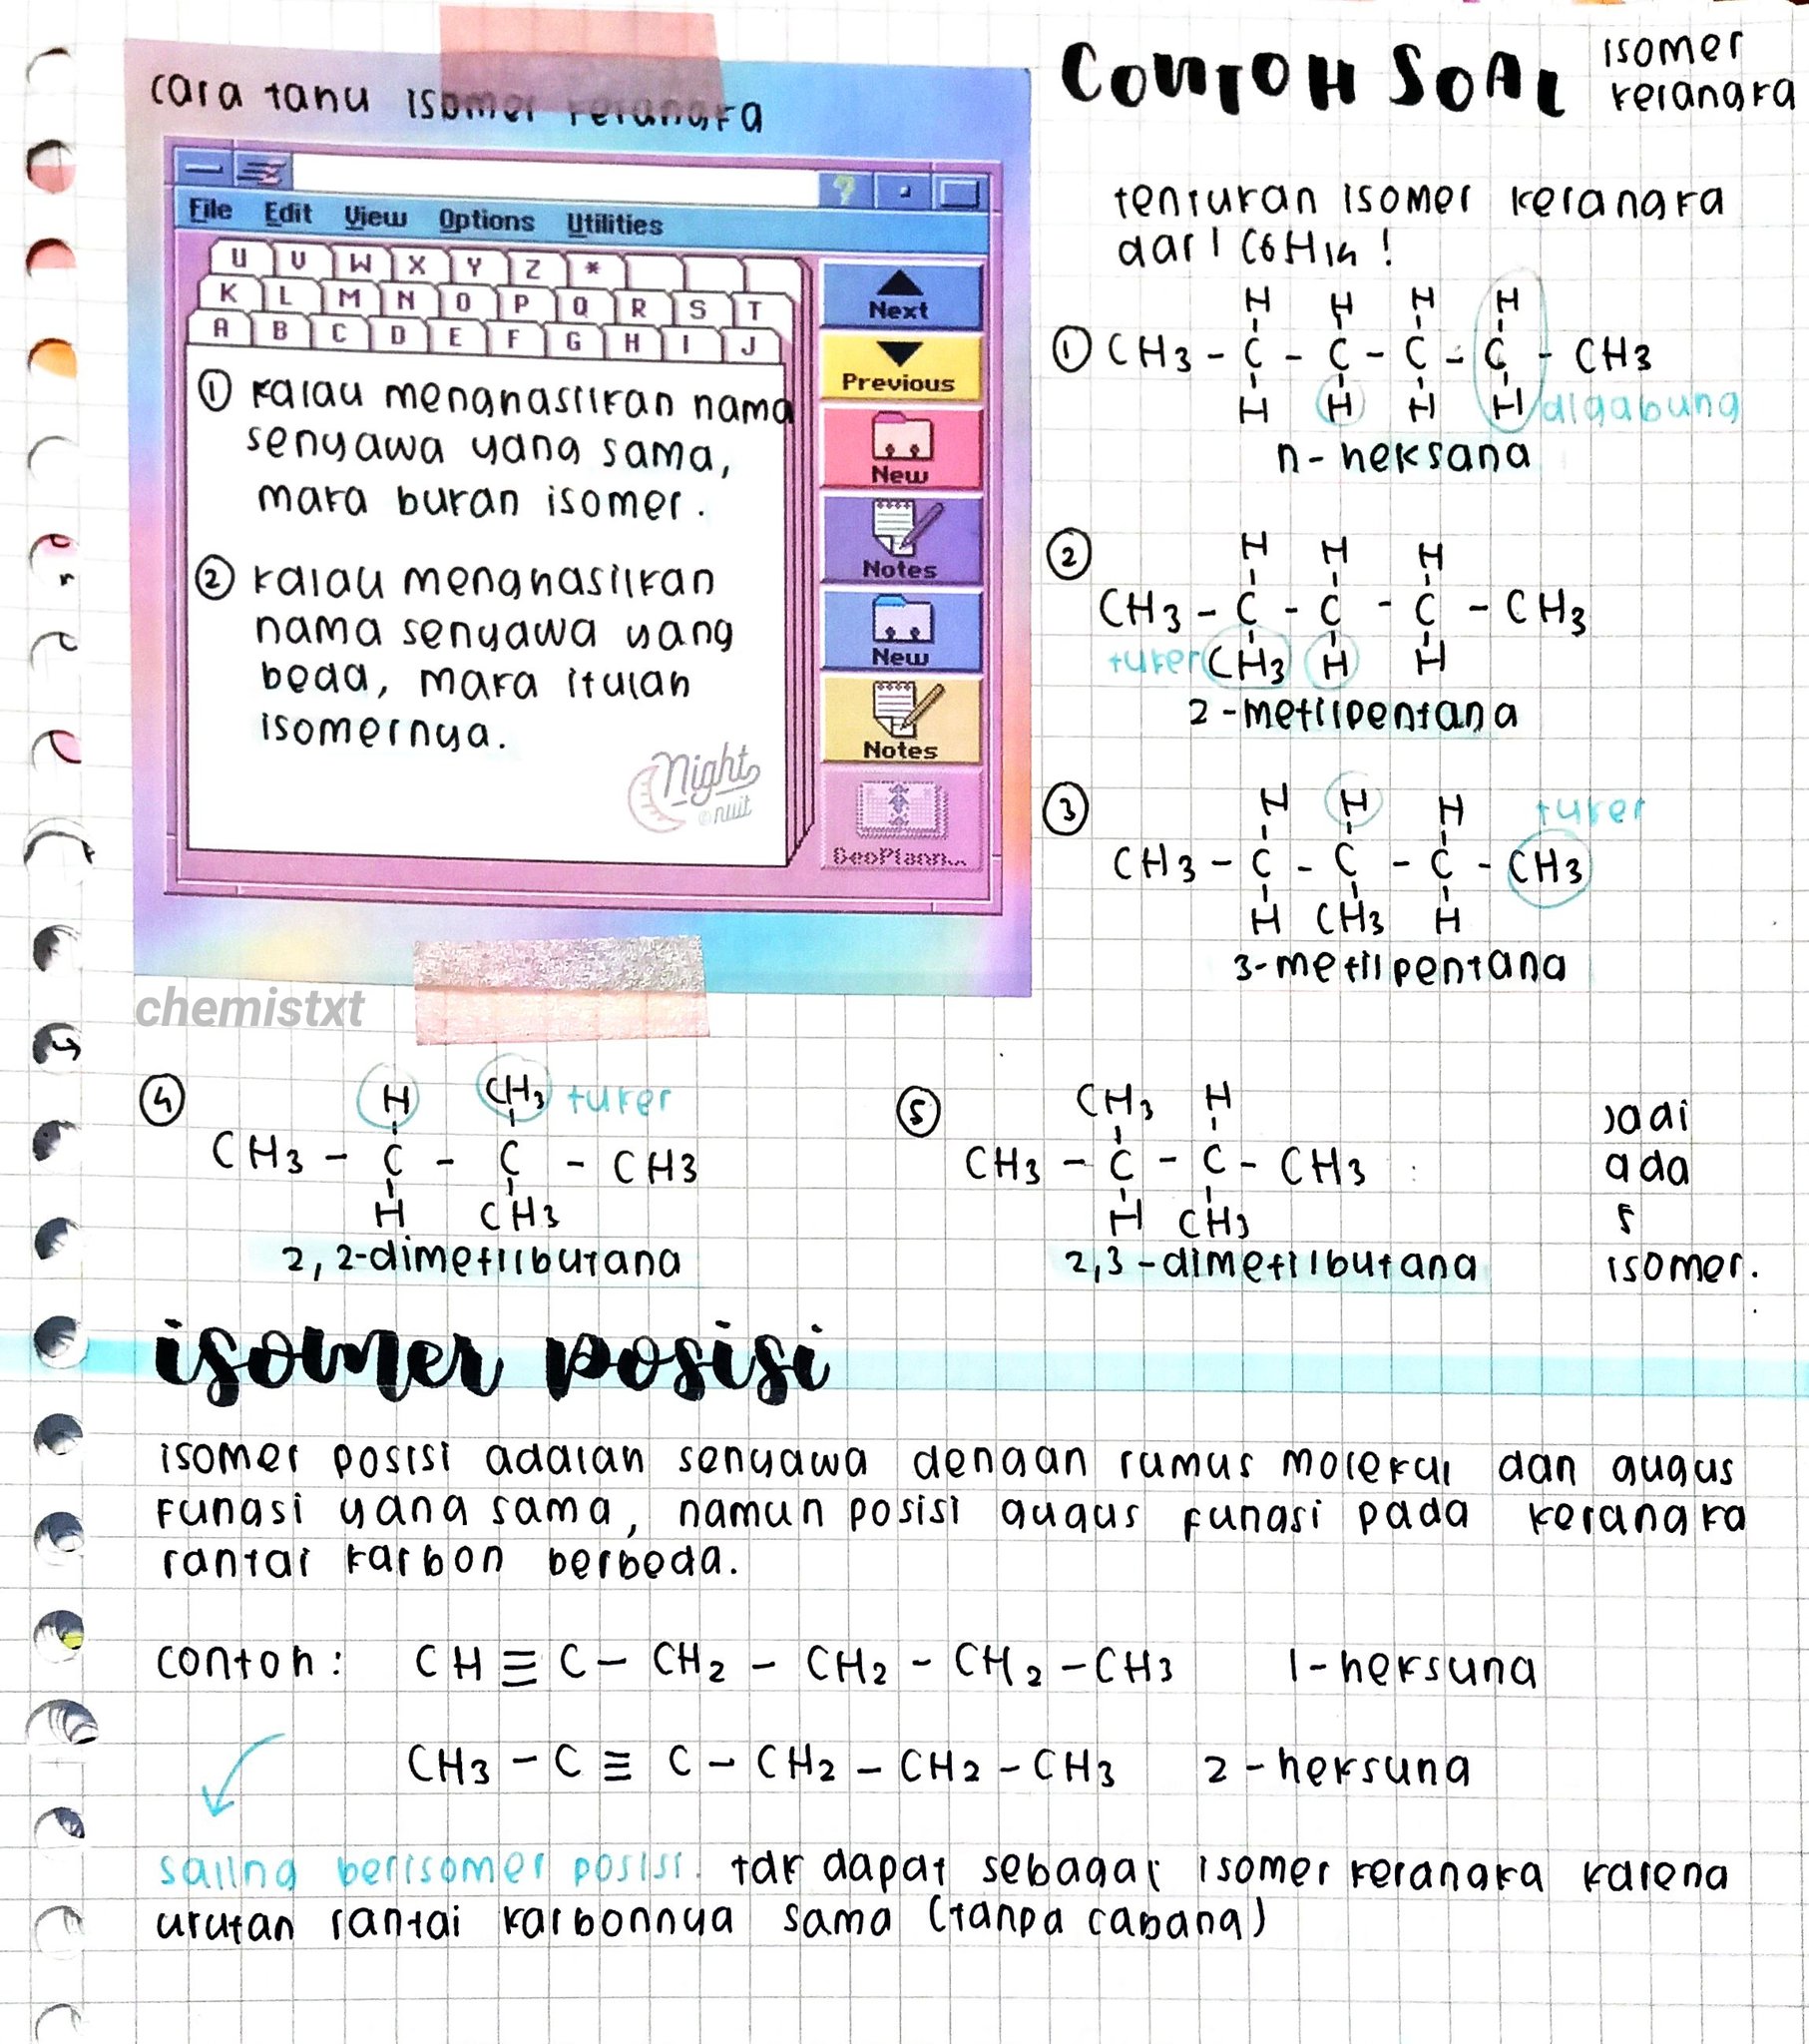 cara tahu isomer kerangka
File Edit View Options Utilities
U V W X Y Z *
K L M N O P Q R S T
A B C D E F G H I J
① kalau menghasilkan nama
senyawa yang sama,
maka bukan isomer.
② kalau menghasilkan
nama senyawa yang
beda, maka itulah
isomernya.
Night
nuit
Next
Previous
New
Notes
New
Notes
GeoPlann...
chemistxt
CONTOH SOAL isomer
kerangka
tentukan isomer kerangka
dari C6H14 !
H H H H
① CH3 - C - C - C - C - CH3
H H H H digabung
n-heksana
②
H H H
CH3 - C - C - C - CH3
tuker CH3 H H
2-metilpentana
③
H H H tuker
CH3 - C - C - C - CH3
H CH3 H
3-metilpentana
④
H CH3 tuker
CH3 - C - C - CH3
H CH3
2,2-dimetilbutana
⑤
CH3 H
CH3 - C - C - CH3
H CH3
2,3-dimetilbutana
jadi
ada
5
isomer.
isomer posisi
isomer posisi adalah senyawa dengan rumus molekul dan gugus
fungsi yang sama, namun posisi gugus fungsi pada kerangka
rantai karbon berbeda.
contoh: CH ≡ C - CH2 - CH2 - CH2 - CH3 1-heksuna
CH3 - C ≡ C - CH2 - CH2 - CH3 2-heksuna
saling berisomer posisi. tdk dapat sebagai isomer kerangka karena
urutan rantai karbonnya sama (tanpa cabang)